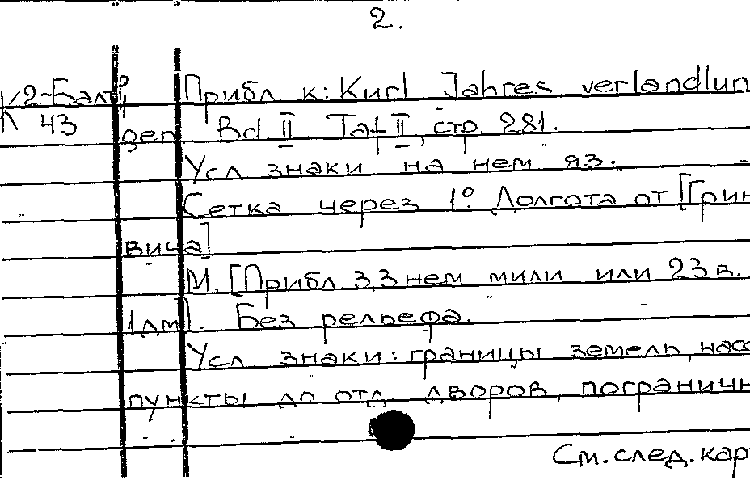 2.
К2-Балт Прибл к: Kurl Jahres verlandlun
43 ден Bd II Taf II, стр 281.
Усл знаки на нем яз.
Сетка через 1° Долгота от [Грин
вича]
М. [Прибл 3,3 нем мили или 23 в.
1 дм]. Без рельефа.
Усл знаки: границы земель, нас
пункты до отд дворов, погранич
См. след. кар